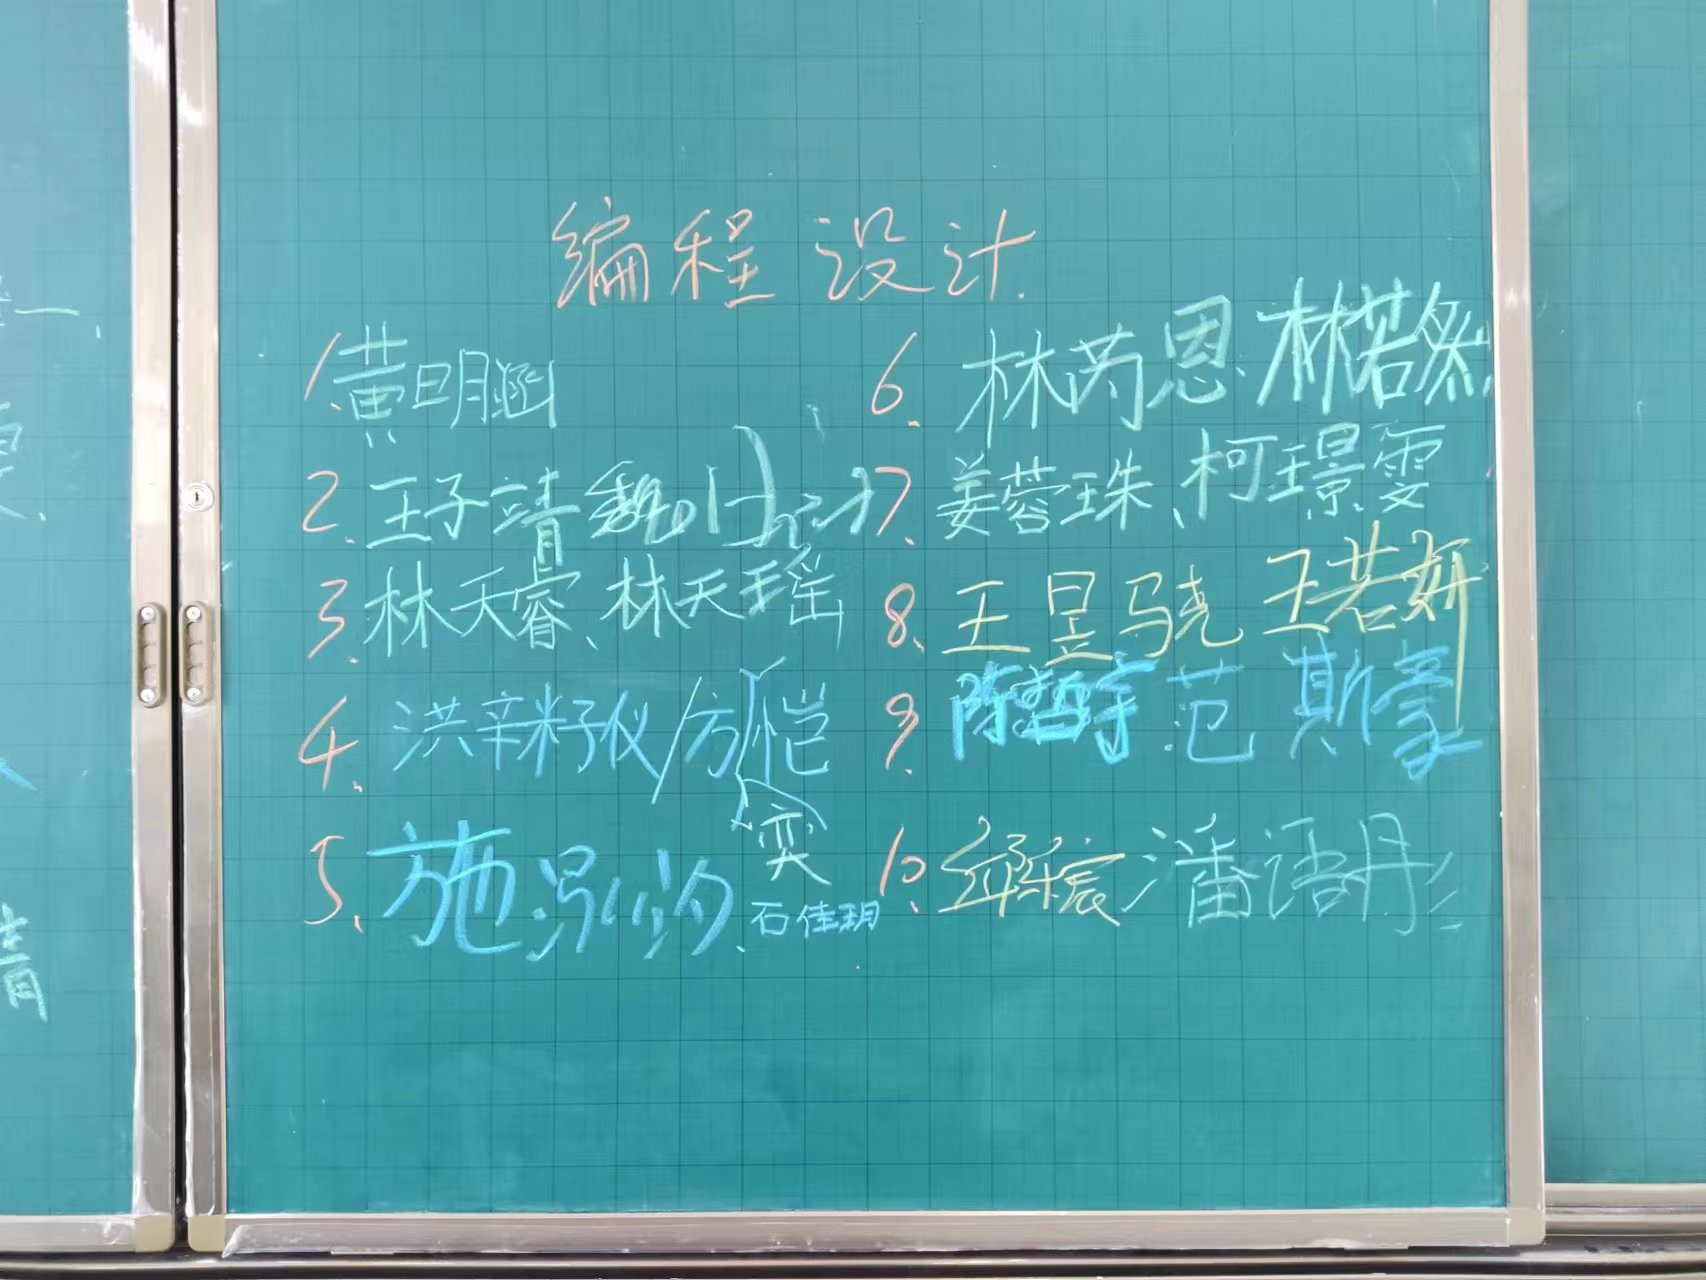 编程设计
1.黄明涵
2.王子靖
3.林天睿、林天瑶
4.洪辛籽仪/方恺奕
5.施
石佳玥
6.林芮恩 林若
7.姜蓉珠、柯璟雯
8.王昱骁 王若妍
9.陈哲宇 范斯豪
10. 潘语彤